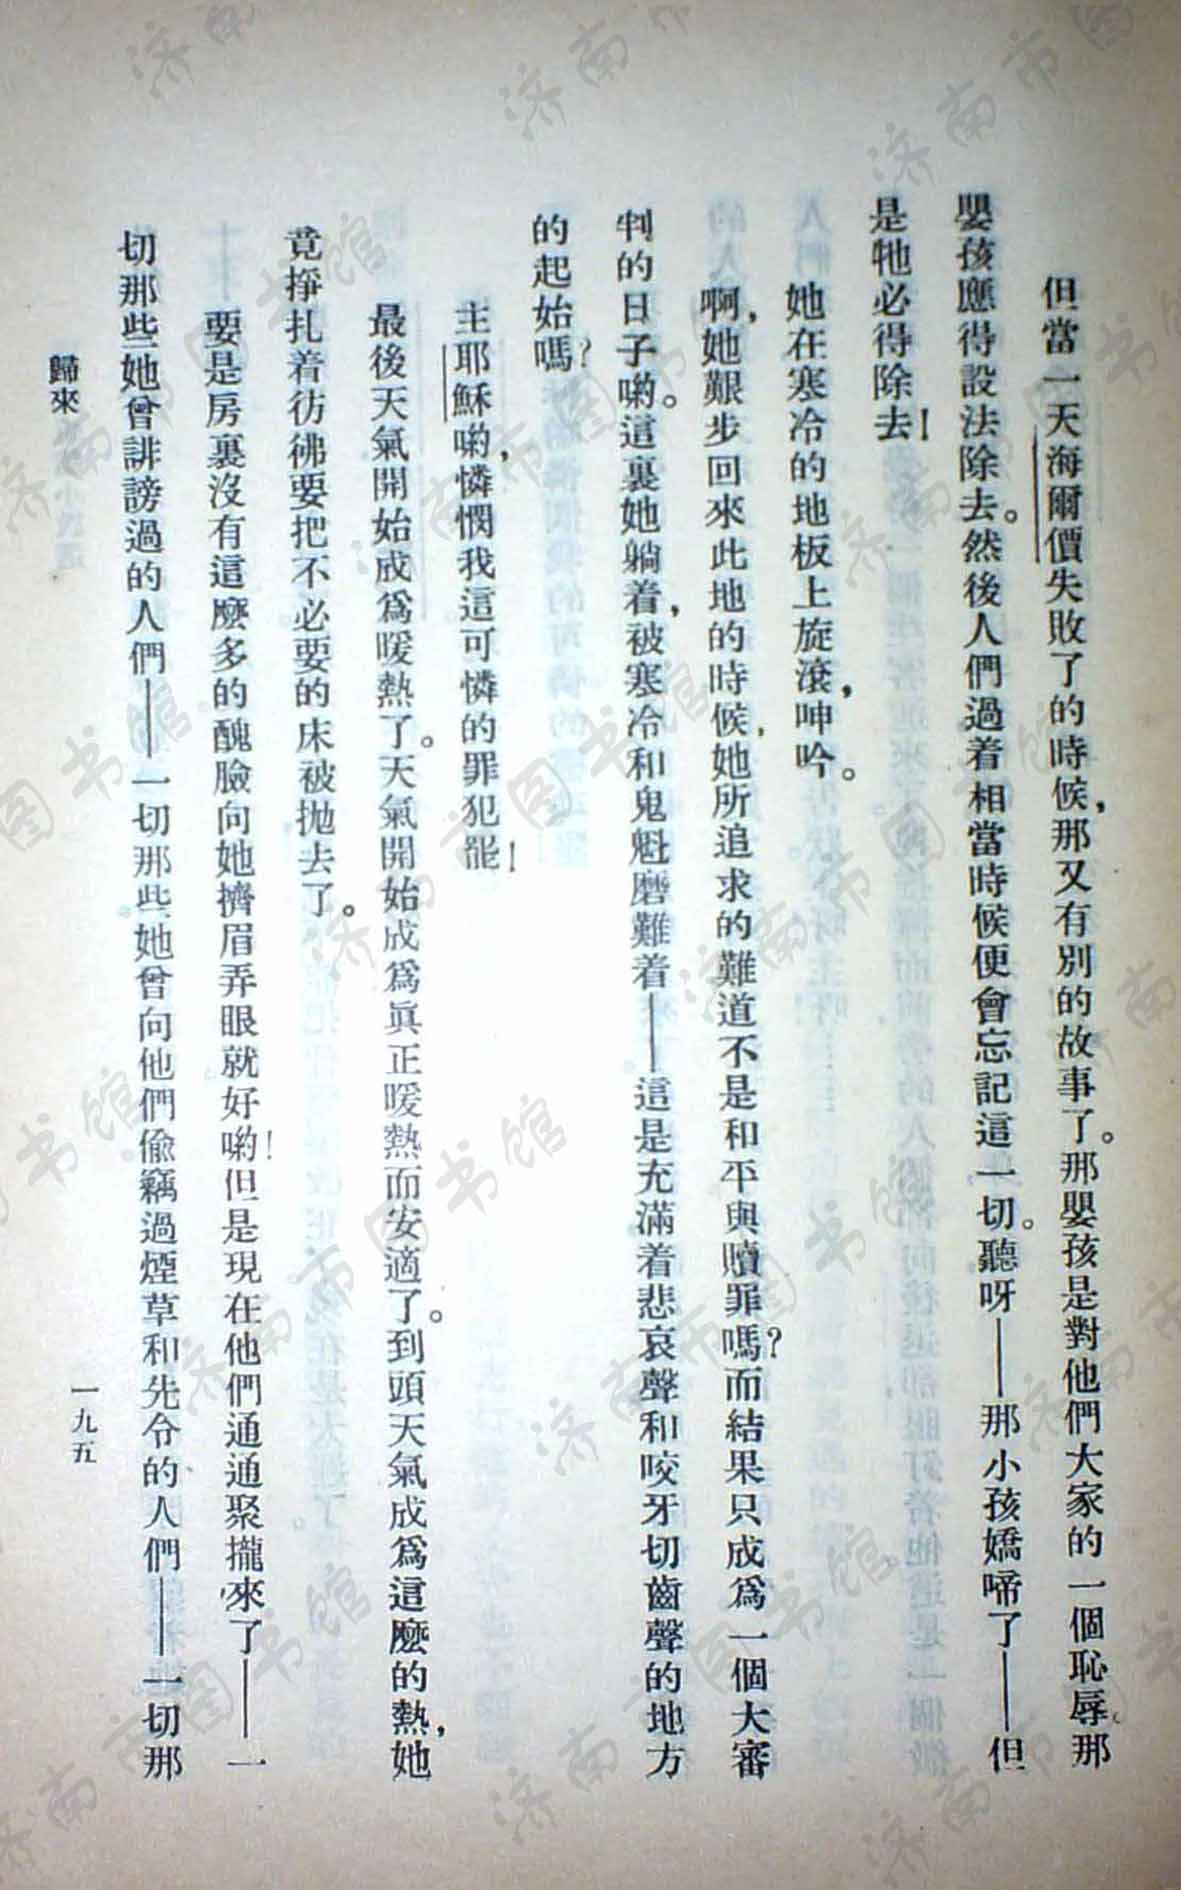 但當一天海爾價失敗了的時候，那又有別的故事了。那嬰孩是對他們大家的一個恥辱，那
嬰孩應得設法除去。然後人們過着相當時候便會忘記這一切。聽呀——那小孩嬌啼了——但
是牠必得除去！
她在寒冷的地板上旋滾，呻吟。
啊，她艱步回來此地的時候，她所追求的難道不是和平與贖罪嗎？而結果只成爲一個大審
判的日子喲。這裏她躺着，被寒冷和鬼魁磨難着——這是充滿着悲哀聲和咬牙切齒聲的地方
的起始嗎？
主耶穌喲，憐憫我這可憐的罪犯罷！
最後天氣開始成爲暖熱了。天氣開始成爲眞正暖熱而安適了。到頭天氣成爲這麼的熱，她
竟掙扎着彷彿要把不必要的床被拋去了。
要是房裏沒有這麼多的醜臉向她擠眉弄眼就好喲！但是現在他們通通聚攏來了——一
切那些她曾誹謗過的人們——一切那些她曾向他們偷竊過煙草和先令的人們——一切那
歸來
一九五
济南市图书馆